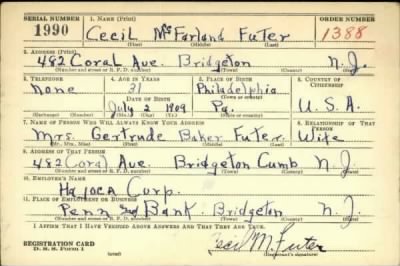 SERIAL NUMBER 1. NAME (Print) ORDER NUMBER
1990 Cecil McFarland Futer 1388
(First) (Middle) (Last)
2. ADDRESS (Print)
482 Coral Ave. Bridgeton N.J.
(Number and street or R. F. D. number) (Town) (County) (State)
3. TELEPHONE 4. AGE IN YEARS 5. PLACE OF BIRTH 6. COUNTRY OF CITIZENSHIP
None 31 Philadelphia
DATE OF BIRTH (Town or county)
July 2 1909 Pa. U.S.A.
(Mo.) (Day) (Yr.) (State or country)
7. NAME OF PERSON WHO WILL ALWAYS KNOW YOUR ADDRESS 8. RELATIONSHIP OF THAT PERSON
Mrs. Gertrude Baker Futer. Wife
(Mr., Mrs., Miss) (First) (Middle) (Last)
9. ADDRESS OF THAT PERSON
482 Coral Ave. Bridgeton Cumb N.J.
(Number and street or R. F. D. number) (Town) (County) (State)
10. EMPLOYER'S NAME
Hajoca Corp.
11. PLACE OF EMPLOYMENT OR BUSINESS
Penn and Bank. Bridgeton N.J.
(Number and street or R. F. D. number) (Town) (County) (State)
I AFFIRM THAT I HAVE VERIFIED ABOVE ANSWERS AND THAT THEY ARE TRUE.
REGISTRATION CARD
D. S. S. Form 1 Cecil M. Futer
(Registrant's signature)